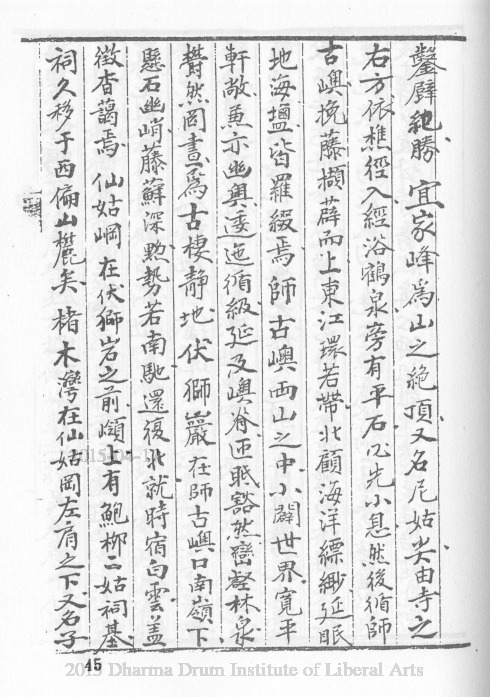 鑿壁絕勝 宜家峰為山之絕頂又名尼姑尖由寺之
右方依樵徑入經浴鶴泉旁有平石必先小息然後循師
古嶼挽藤擷薜而上東江環若帶北顧海洋縹緲延眠
地海壖皆羅綴焉 師古嶼西山之中小闢世界寬平
軒敞兼亦幽奧逶迤循級延及嶼脊迊眠豁然巒壑林泉
欝然図畫為古棲靜地 伏獅巖在師古嶼口南嶺下
懸石幽峭藤蘇深黝勢若南馳還復北就時宿白雲蓋
徵杳藹焉 仙姑岡在伏獅岩之前嶺上有鮑栁二姑祠基
祠久移于西偏山麓矣 楮木灣在仙姑岡左肩之下又名子
45
2015-04-1
2013 Dharma Drum Institute of Liberal Arts